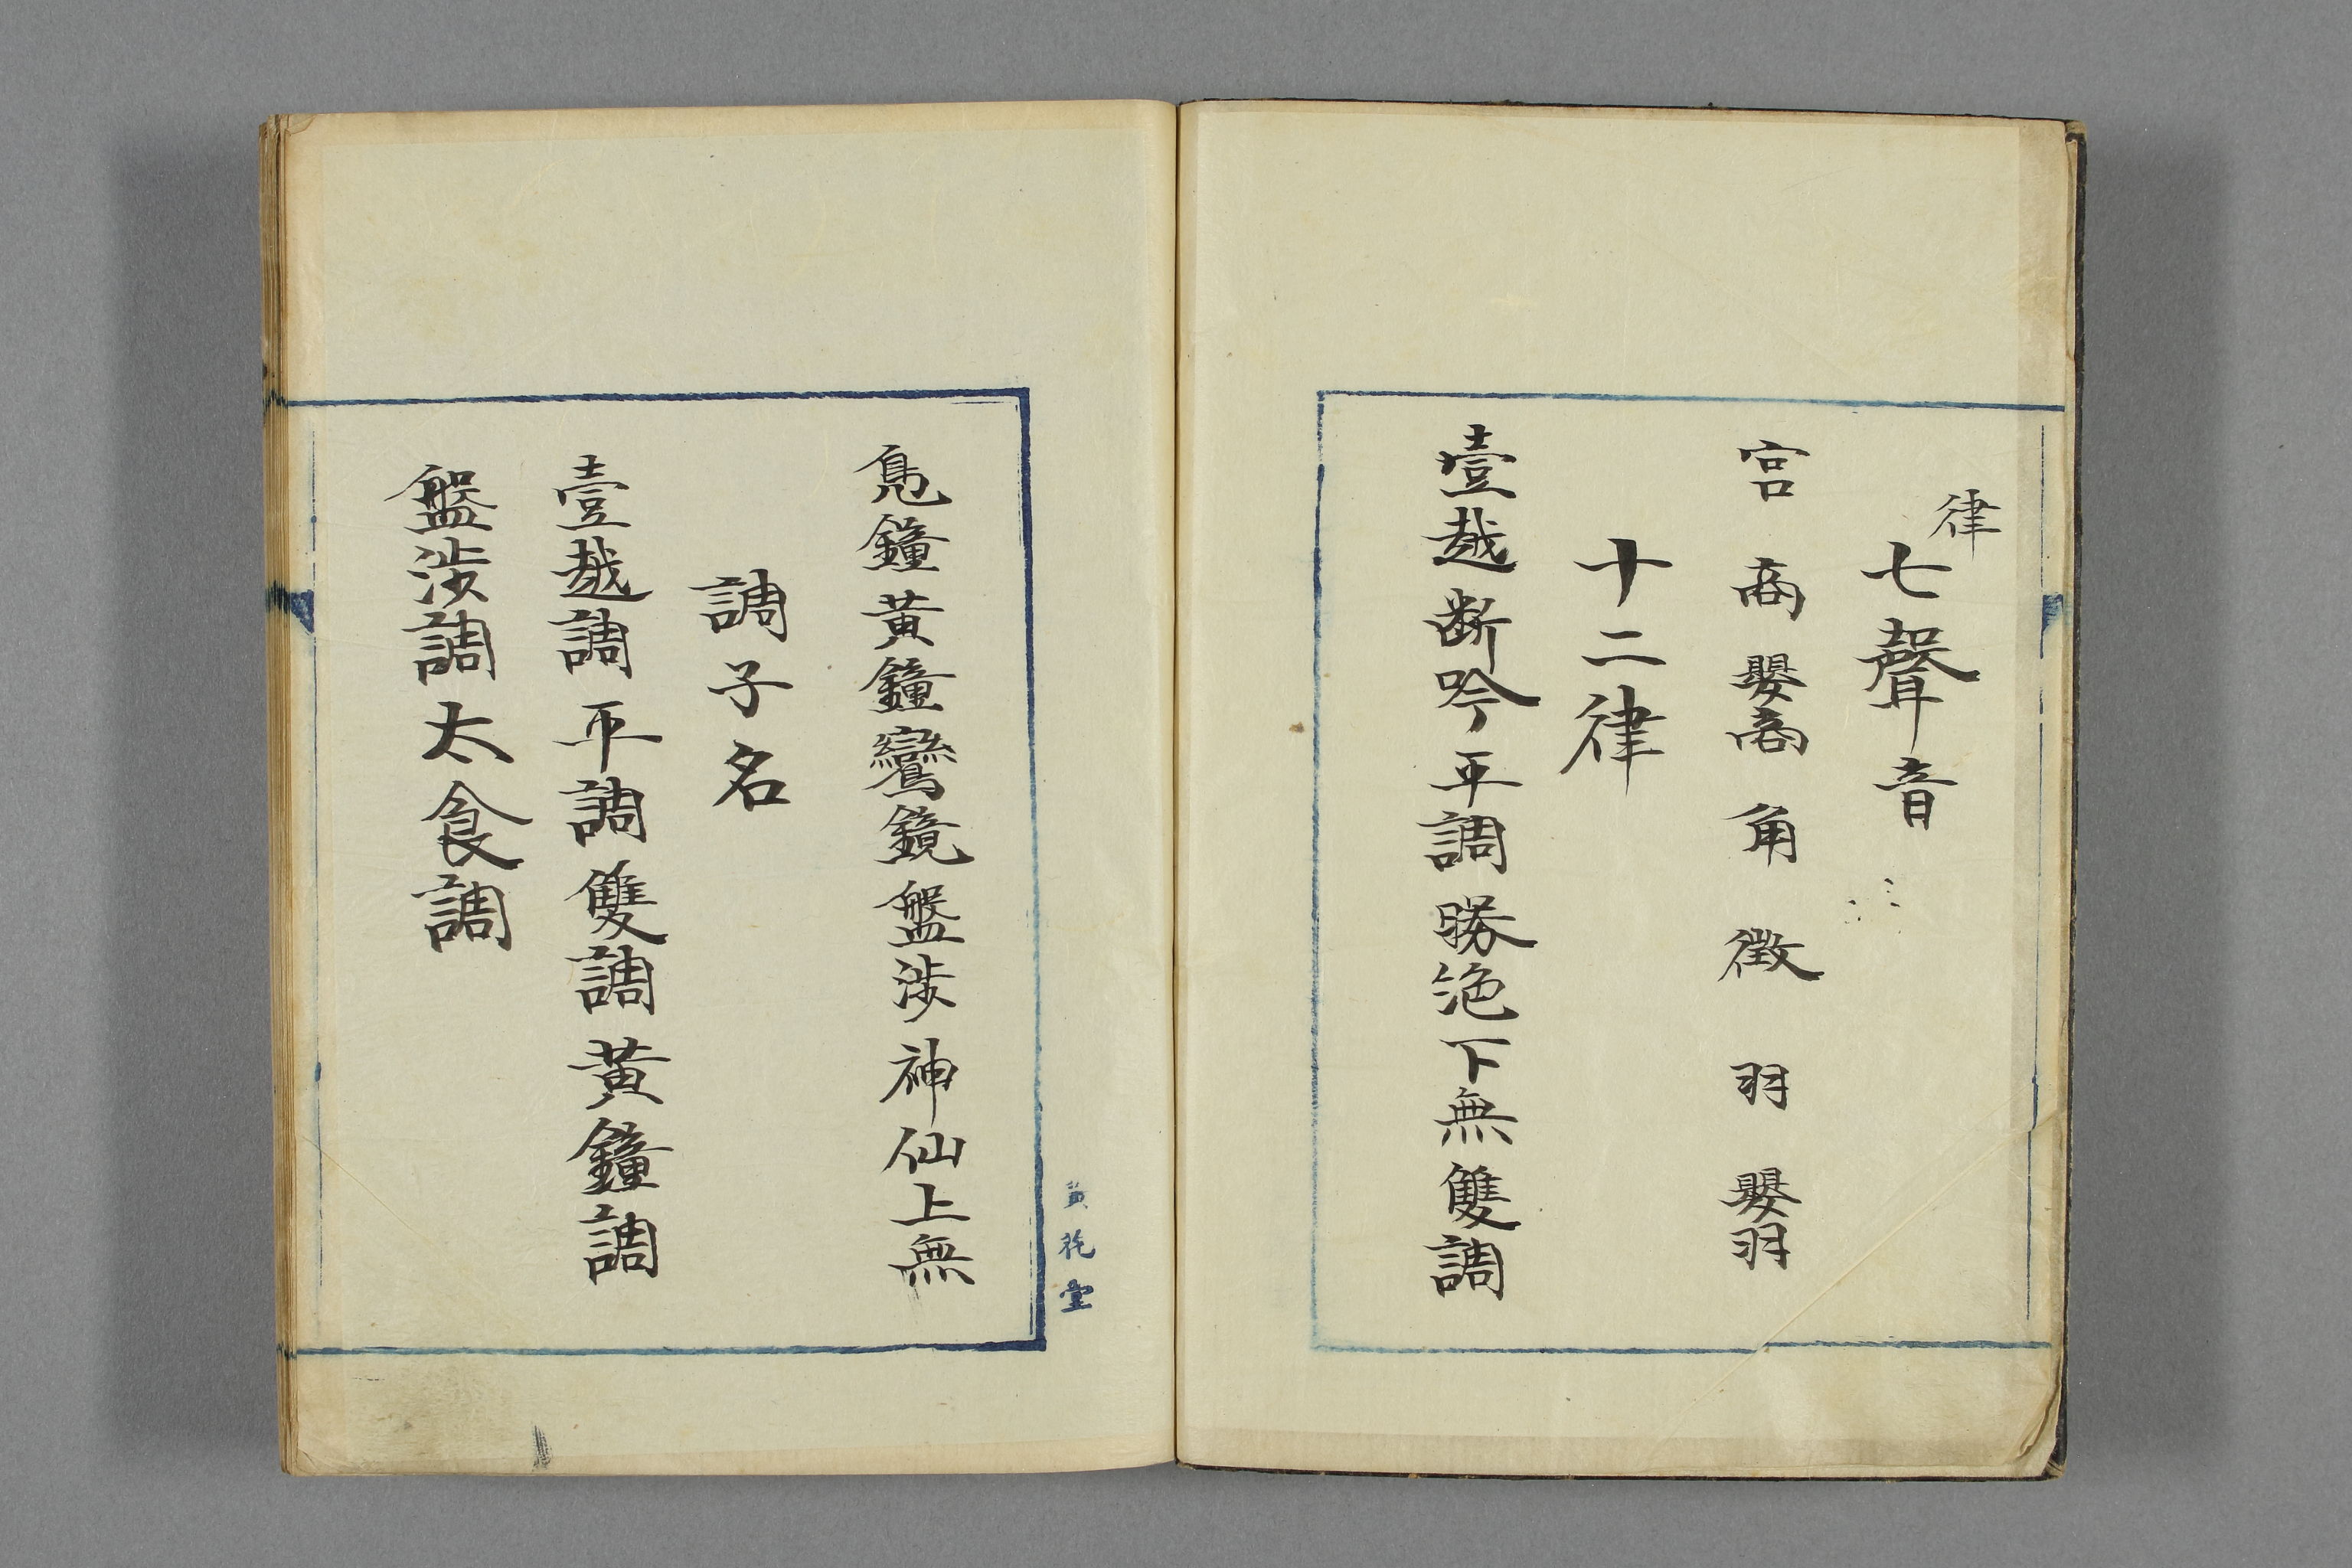 律
七聲音
宮 商 嬰商 角 徵 羽 嬰羽
十二律
壹越 断吟 平調 勝絶 下無 雙調
鳧鐘 黃鐘 鸞鏡 盤渉 神仙 上無
調子名
壹越調 平調 雙調 黃鐘調
盤渉調 太食調
堂